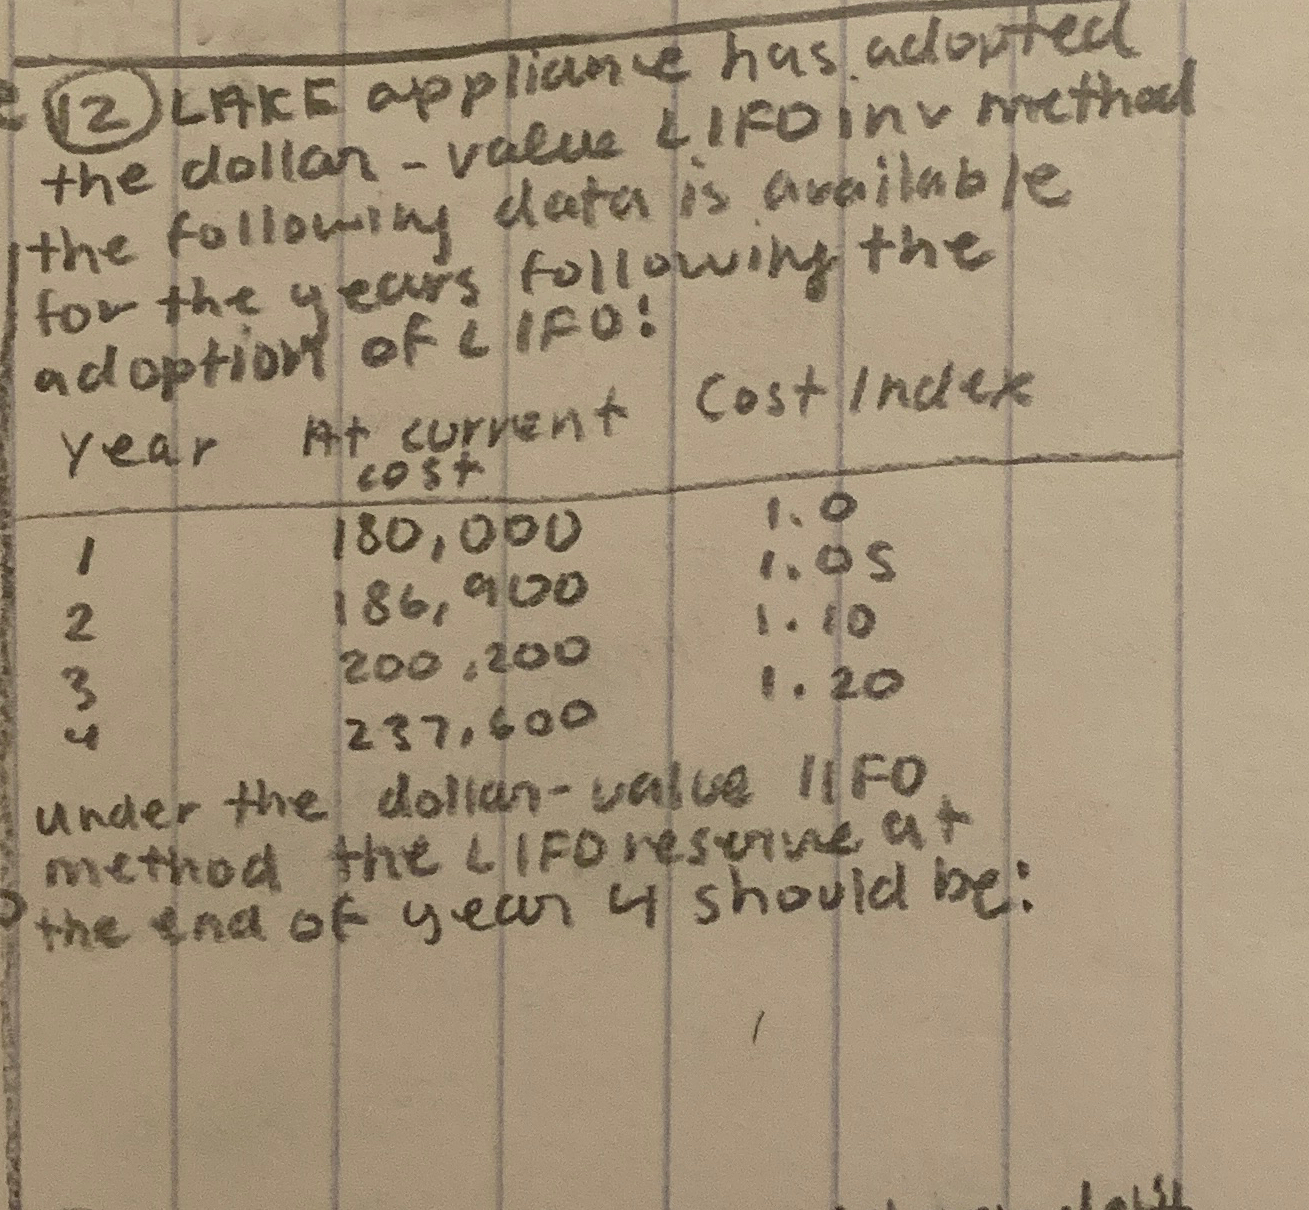 12 LAKE appliance has adopted
the dollar-value LIFO inv method
the following data is available
for the years following the
adoption of LIFO:
Year At current cost Cost Index
1 180,000 1.0
2 186,900 1.05
3 200,200 1.10
4 237,600 1.20
under the dollar-value LIFO
method the LIFO reserve at
the end of year 4 should be: